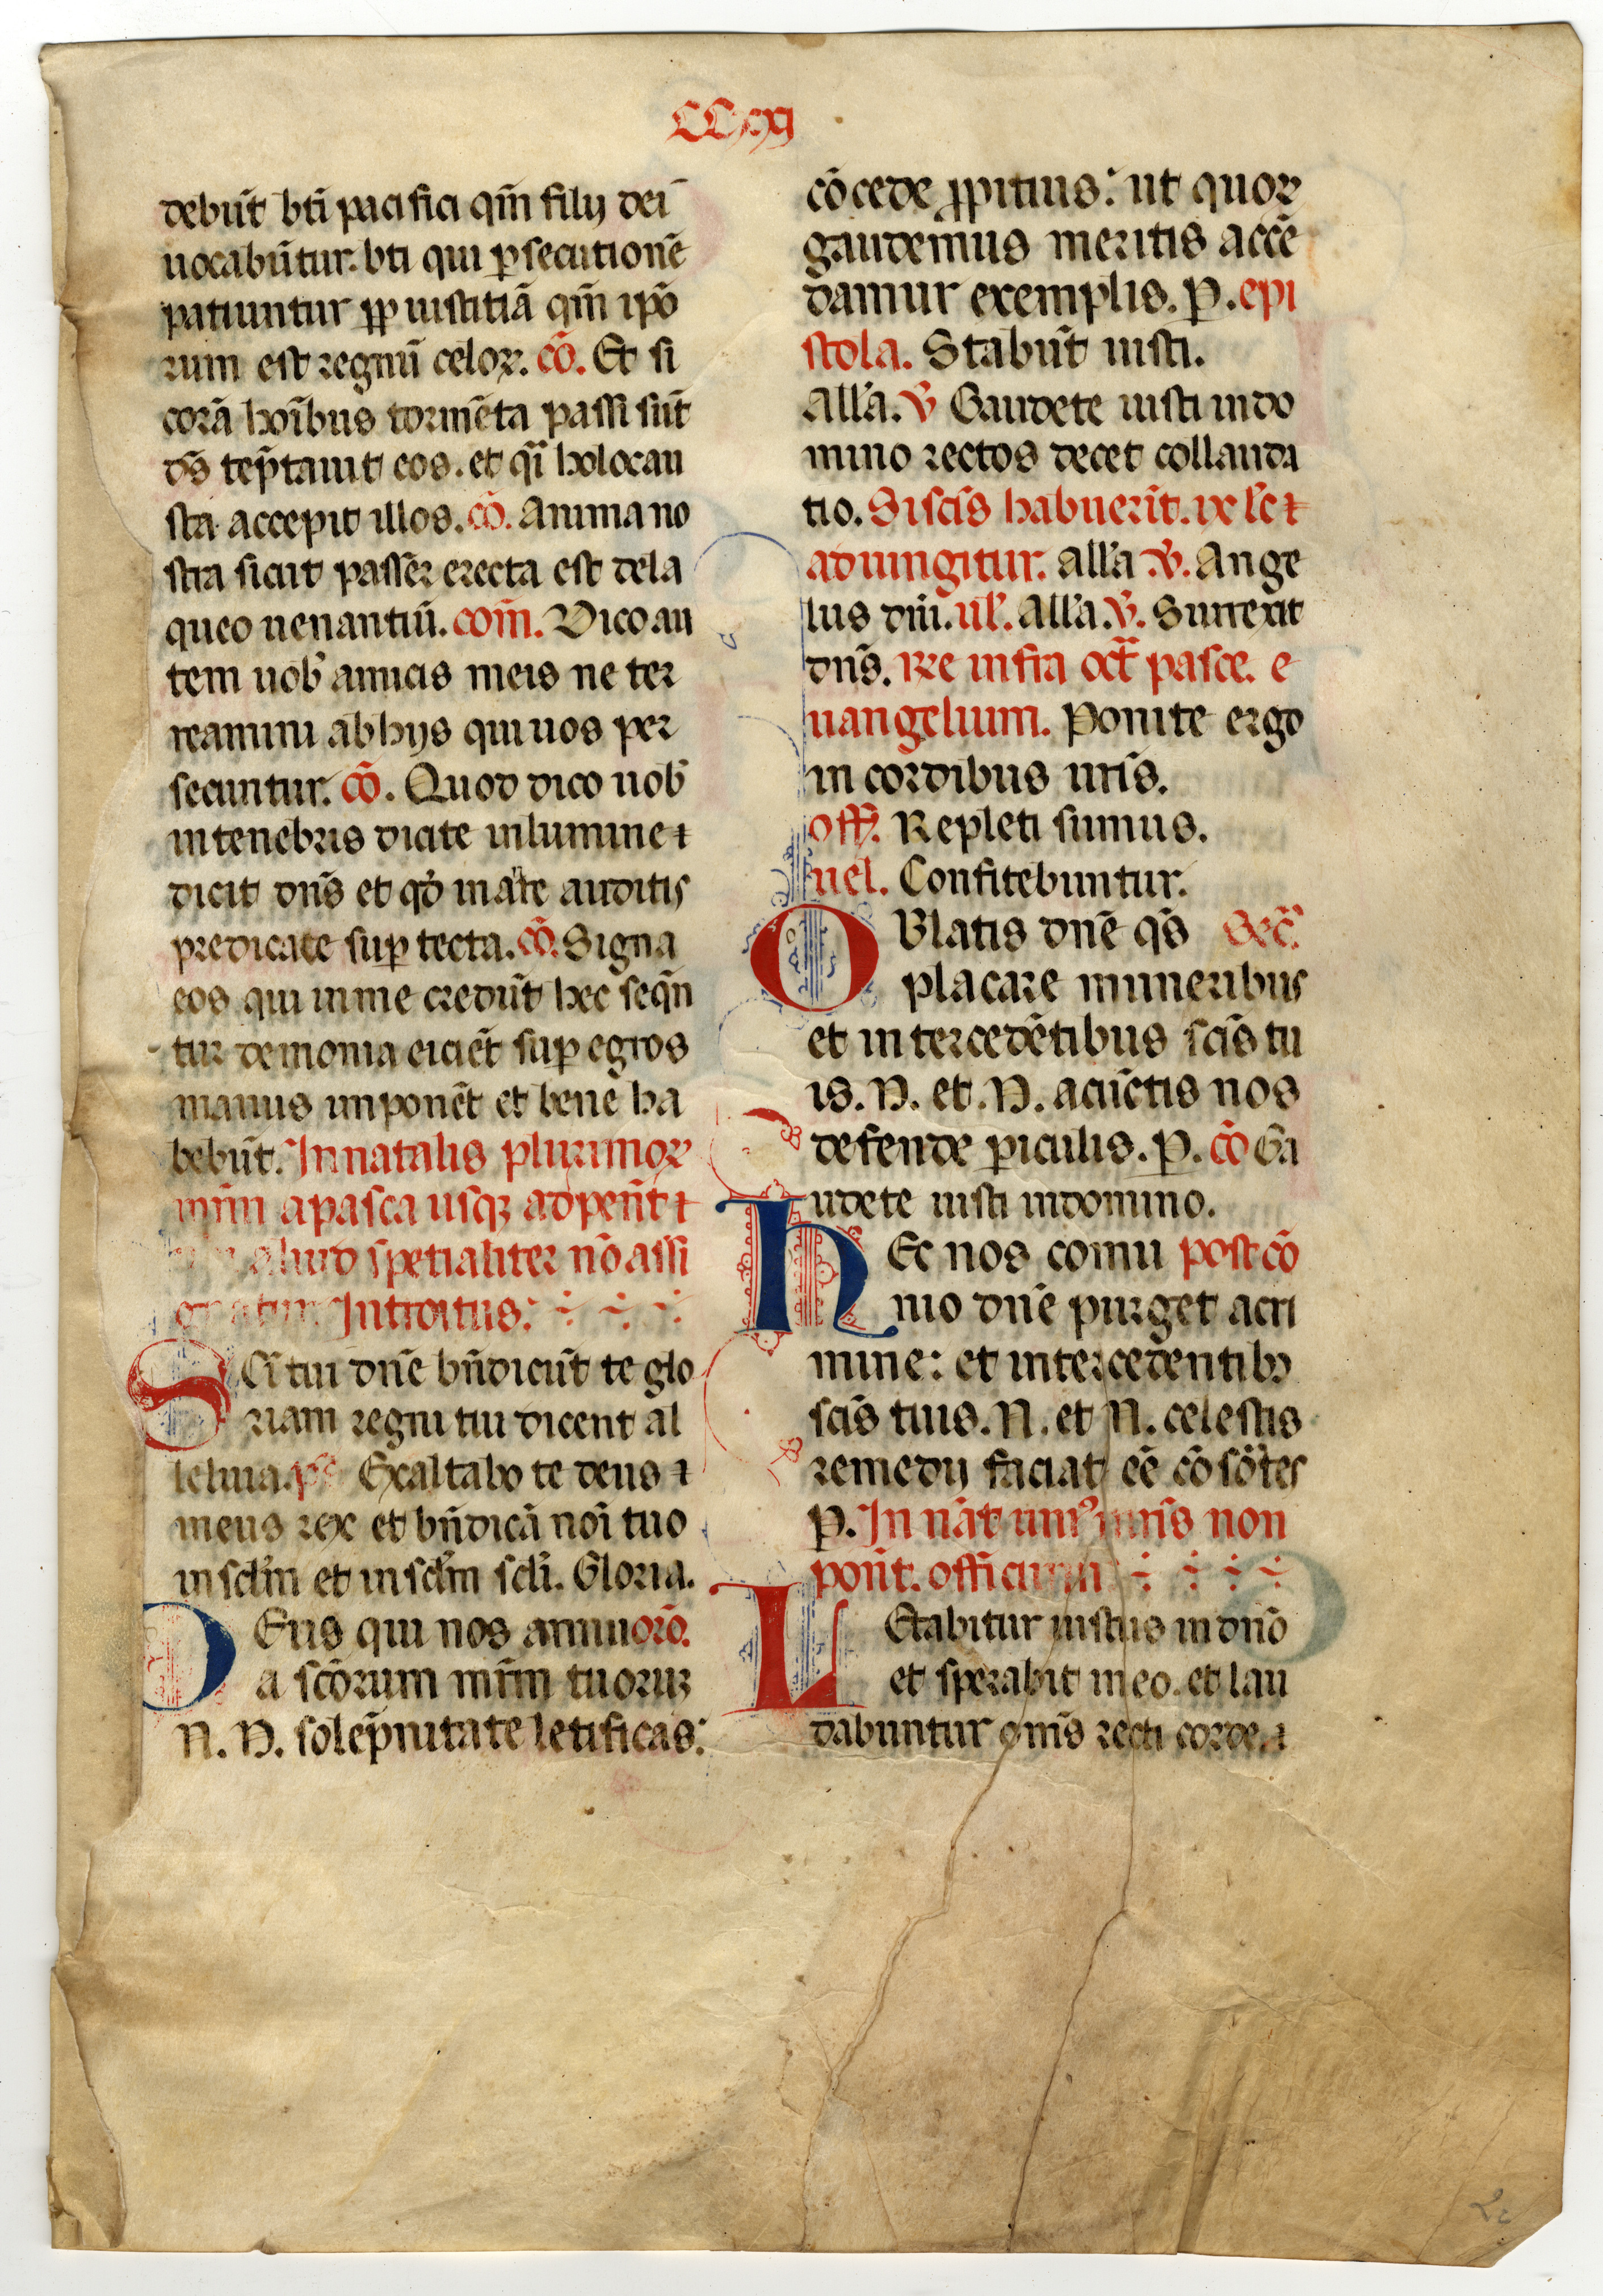 CCxxi
debūt bti pacifici qm̄ filij dei
uocabūtur. bti qui ꝑsecutionē
patiuntur ꝓp iustitiā qm̄ ipō
rum est regnū celoꝝ. cō. Et si
corā hoībus tormēta passi sūt
ds̄ tep̄tauit eos. et qͣi holocau
sta accepit illos. cō. Anima no
stra sicut passer erecta est dela
queo uenantiū. com̄. Dico au
tem uob̓ amicis meis ne ter
reamini abhijs qui uos per
secuntur. cō. Quod dico uob̓
intenebris dicite inlumine ⁊
dicit dn̄s et qđ in aīre auditis
predicate suꝑ tecta. cō. Signa
eos qui inme credūt hec seqn̄
tur demonia eiciēt suꝑ egros
manus imponēt et bene ha
bebūt. In natalis plurimoꝝ
mr̄m apasca usqꝫ adpent̄ ⁊
aliud spetialiter nō assi
Introitus.
SCi tui dn̄e bn̄dicūt te glo
riam regni tui dicent al
leluia. ps̄ Exaltabo te deus ⁊
meus rex et bn̄dicā noī tuo
in sclm̄ et in sclm̄ scli. Gloria.
DEus qui nos annu orō.
a scōrum mr̄m tuoruꝝ
N. N. solep̄nitate letificas:
cōcede ꝓpitius: ut quoꝝ
gaudemus meritis accē
damur exemplis. P. epi
stola. Stabūt iusti.
Alla. V̄ Gaudete iusti in do
mino rectos decet collauda
tio. Si scīs habuerīt. ix lc̄ ⁊
adiungitur. Alla V̄. Ange
lus dn̄i. ul̓. Alla. V̄. Surrexit
dn̄s. Rͬe infra octͣ pasce. e
uangelium. Ponite ergo
in cordibus ur̄is.
off̄. Repleti sumus.
uel. Confitebuntur.
OBlatis dn̄e qs̄ Sec̄.
placare muneribus
et intercedētibus scīs tu
is. N. et. N. acūctis nos
defende ꝑiculis. P. cō Ga
udete iusti indomino.
HEc nos comu post cō
nio dn̄e purget acri
mine: et intercedentibꝫ
scīs tuis. N. et N. celestis
remedij faciat eē cōsōrtes
P. In nāt uniꝰ mr̄is non
pont̄. officium
LEtabitur iustus in dn̄o
et sperabit in eo. et lau
dabuntur om̄s recti corde. ⁊